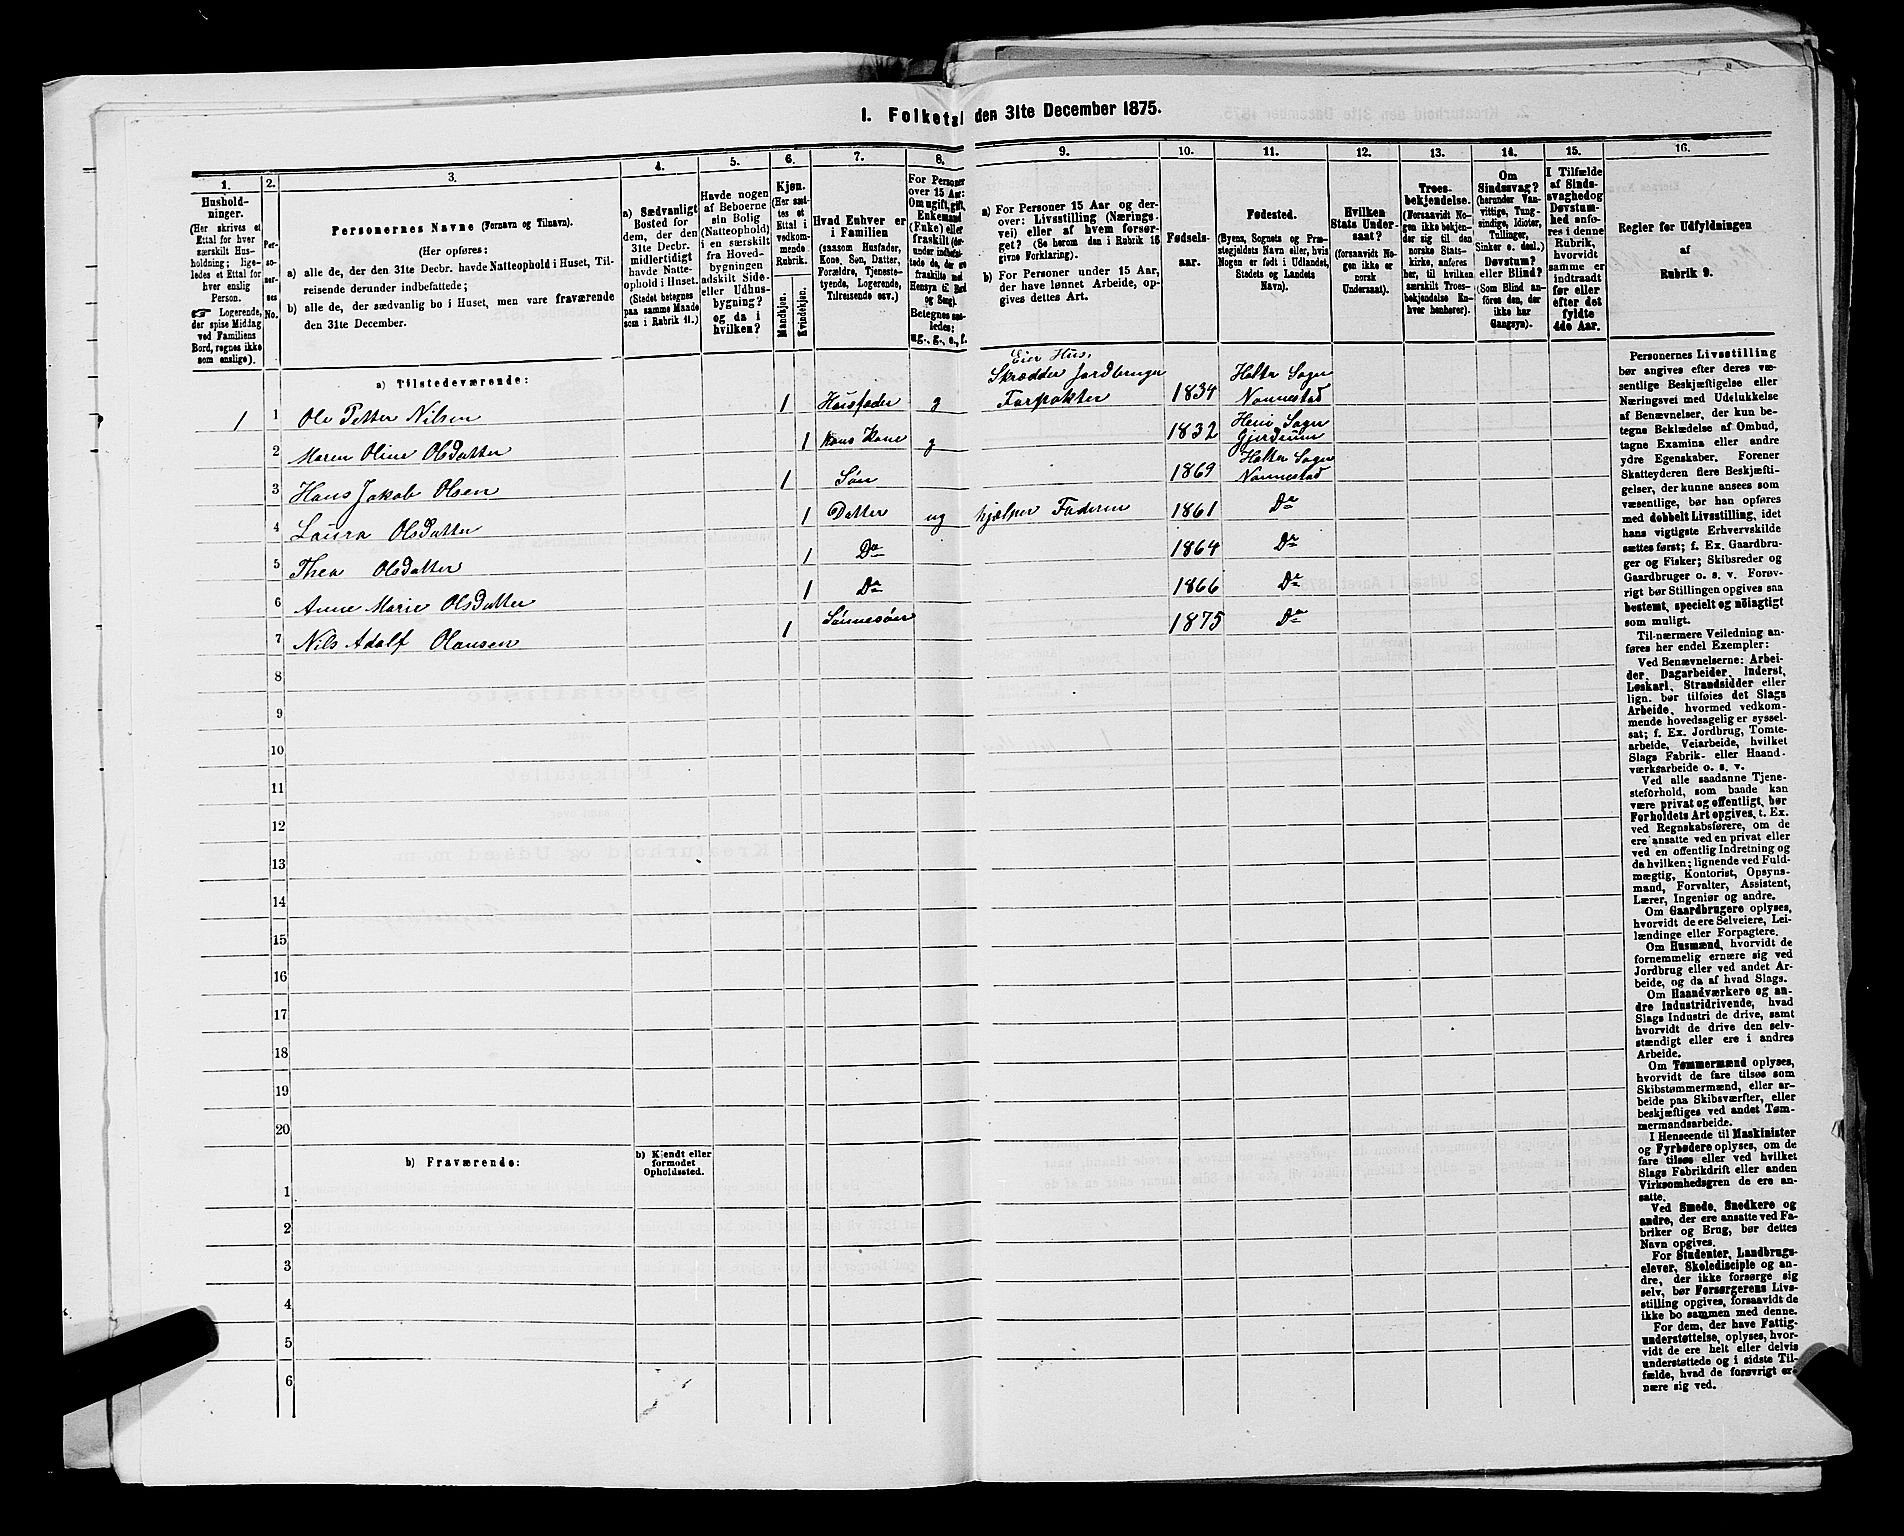 I. Folketal den 31te December 1875.
1. 2. 3. 4. 5. 6. 7. 8. 9. 10. 11. 12. 13. 14. 15. 16.
Husholdninger.
(Her skrives et
Ettal for hver
særskilt Husholdning; ligeledes et Ettal for
hver enslig
Person.
☞ Logerende,
der spise Middag
ved Familiens
Bord, regnes ikke
som enslige).
Personernes No.
Personernes Navne (Fornavn og Tilnavn).
(Her opføres:
a) alle de, der den 31te Decbr. havde Natteophold i Huset, Tilreisende derunder indbefattede;
b) alle de, der sædvanlig bo i Huset, men vare fraværende
den 31te December.
a) Sædvanligt
Bosted for
dem, der den
31te Decbr.
midlertidigt
havde Natteophold i Huset.
(Stedet betegnes
paa samme Maade
som i Rubrik 11.)
Havde nogen
af Beboerne
sin Bolig
(Natteophold)
i en særskilt
fra Hovedbygningen
adskilt Side- eller Udhusbygning?
og da i
hvilken?
Kjøn.
(Her sættes et
Ettal i
vedkommende
Rubrik.
Mandkjøn.
Kvindekjøn.
Hvad Enhver er
i Familien
(saasom Husfader,
Kone, Søn, Datter,
Forældre, Tjenestetyende, Logerende,
Tilreisende osv.)
For Personer
over 15 Aar:
Om ugift, gift,
Enkemand
(Enke) eller
fraskilt (herunder indbefattede de, der ere
fraskilte med
Hensyn til Bord
og Seng).
Betegnes saaledes:
ug., g., e., f.
a) For Personer 15 Aar og derover: Livsstilling (Næringsvei) eller af hvem forsørget? (Se herom den i Rubrik 16
givne Forklaring).
b) For Personer under 15 Aar,
der have lønnet Arbeide, opgives dettes Art.
Fødselsaar.
Fødested.
(Byens, Sognets og Præstegjeldets Navn, eller, hvis
Nogen er født i Udlandet,
Stedets og Landets
Navn).
Hvilken
Stats Undersaat?
(forsaavidt Nogen ikke er
norsk
Undersaat).
Troesbekjendelse.
(Forsaavidt Nogen ikke bekjender sig til den
norske Statskirke, anføres
her, til hvilken
særskilt Troesbekjendelse Enhver henhører).
Om
Sindssvag?
(herunder Vanvittige, Tungsindige, Idioter,
Tullinger,
Sinker o. desl.)
Døvstum?
eller Blind?
(Som Blind anføres den, der
ikke har
Gangsyn).
I Tilfælde
af Sindssvaghed og
Døvstumhed anføres i denne
Rubrik,
hvorvidt
samme er
indtraadt
før eller
efter det
fyldte
4de Aar.
Regler for Udfyldningen
af
Rubrik 9.
a) Tilstedeværende:
Eier Hus.
1 1 Ole Petter Nilsen 1 Husfader g Skrædder Jordbruger Forpakter 1834 Holter Sogn Nannestad
2 Maren Oline Olsdatter 1 hans Kone g 1832 Heni Sogn Gjerdrum
3 Hans Jakob Olsen 1 Søn 1869 Holter Sogn Nannestad
4 Laura Olsdatter 1 Datter ug hjælper Faderen 1861 Do
5 Thea Olsdatter 1 Do 1864 Do
6 Anne Marie Olsdatter 1 Do 1866 Do
7 Nils Adolf Olausen 1 Sønnesøn 1875 Do
8
9
10
11
12
13
14
15
16
17
18
19
20
b) Fraværende:
b) Kjendt eller
formodet
Opholdssted.
1
2
3
4
5
6
Personernes Livsstilling
bør angives efter deres væsentlige Beskjæftigelse eller
Næringsvei med Udelukkelse
af Benævnelser, der kun betegne Beklædelse af Ombud,
tagne Examina eller andre
ydre Egenskaber. Forener
Skatteyderen flere Beskjæftigelser, der kunne ansees som
væsentlige, bør han opføres
med dobbelt Livsstilling, idet
hans vigtigste Erhvervskilde
sættes først; f. Ex. Gaardbruger og Fisker; Skibsreder og
Gaardbruger o. s. v. Forøvrigt bør Stillingen opgives saa
bestemt, specielt og nöiagtigt
som muligt.
Til nærmere Veiledning anføres her endel Exempler:
Ved Benævnelserne: Arbeider, Dagarbeider, Inderst,
Løskarl, Strandsidder eller
lign. bør tilføies det Slags
Arbeide, hvormed vedkommende hovedsagelig er sysselsat; f. Ex. Jordbrug, Tomtearbeide, Veiarbeide, hvilket
Slags Fabrik- eller Haandværksarbeide o. s. v.
Ved alle saadanne Tjenesteforhold, som baade kan
være privat og offentligt, bør
Forholdets Art opgives, t. Ex.
ved Regnskabsførere, om de
ere ansatte ved en privat eller
ved en offentlig Indretning og
da hvilken; lignende ved Fuldmægtig, Kontorist, Opsynsmand, Forvalter, Assistent,
Lærer, Ingeniør og andre.
Om Gaardbrugere oplyses,
hvorvidt de ere Selveiere, Leilændinge eller Forpagtere.
Om Husmænd, hvorvidt de
fornemmelig ernære sig ved
Jordbrug eller ved andet Arbeide, og da af hvad Slags.
Om Haandværkere og andre industridrivende, hvad
Slags Industri de drive, samt
hvorvidt de drive den selvstændigt eller ere i andres
Arbeide.
Om Tømmermænd oplyses,
hvorvidt de fare tilsøs som
Skibstømmermænd, eller arbeide paa Skibsværfter, eller
beskjæftiges ved andet Tømmermandsarbeide.
I Henseende til Maskinister
og Fyrbødere oplyses, om de
fare tilsøs eller ved hvilket
Slags Fabrikdrift eller anden
Virksomhedsgren de ere ansatte.
Ved Smede, Snedkere og
andre, der ere ansatte ved Fabriker og Brug, bør dettes
Navn opgives.
For Studenter, Landbrugselever, Skoledisciple og andre, der ikke forsørge sig
selv, bør Forsørgerens Livsstilling opgives, forsaavidt de
ikke bo sammen med denne.
For dem, der have Fattigunderstøttelse, oplyses, hvorvidt de ere helt eller delvis
understøttede og i sidste Tilfælde, hvad de forøvrigt ernære sig ved.